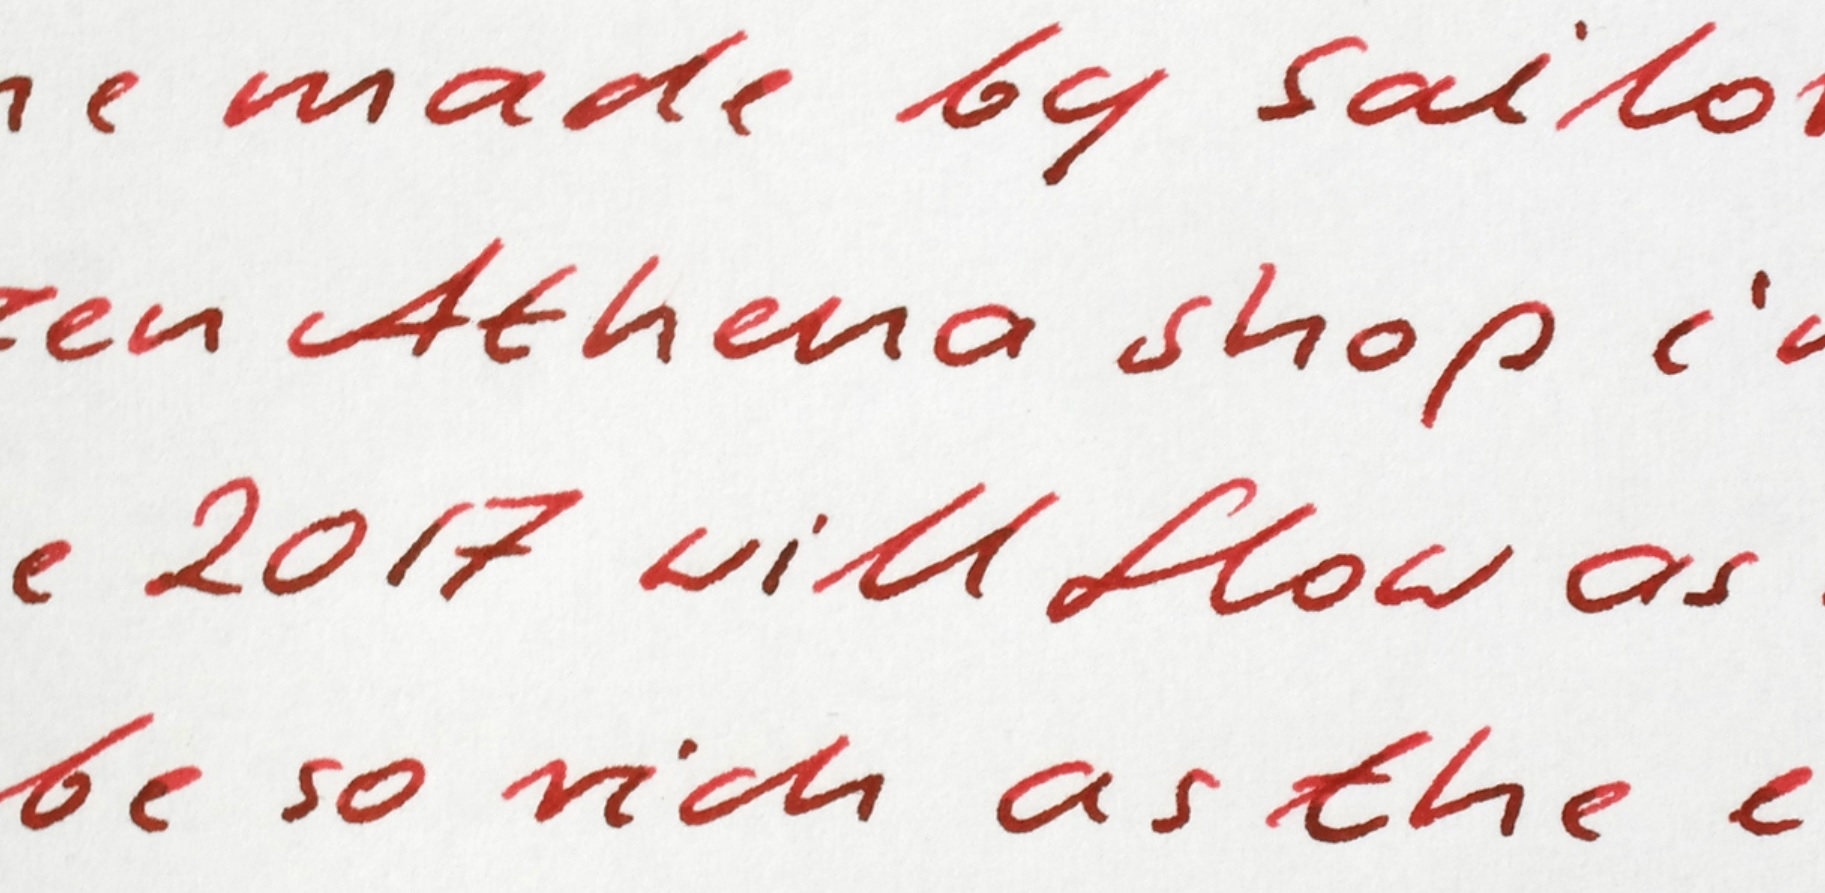 ne made by sailor
zen Athena shop in
e 2017 will flow as
be so rich as the e